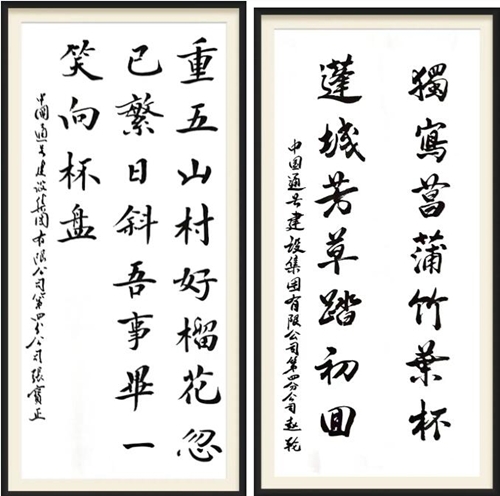 重五山村好榴花忽
已繁日斜吾事畢一
笑向杯盘
中國通号建设集团有限公司第四分公司張寶正
獨寫菖蒲竹葉杯
蓬城芳草踏初回
中国通号建设集团有限公司第四分公司赵乾